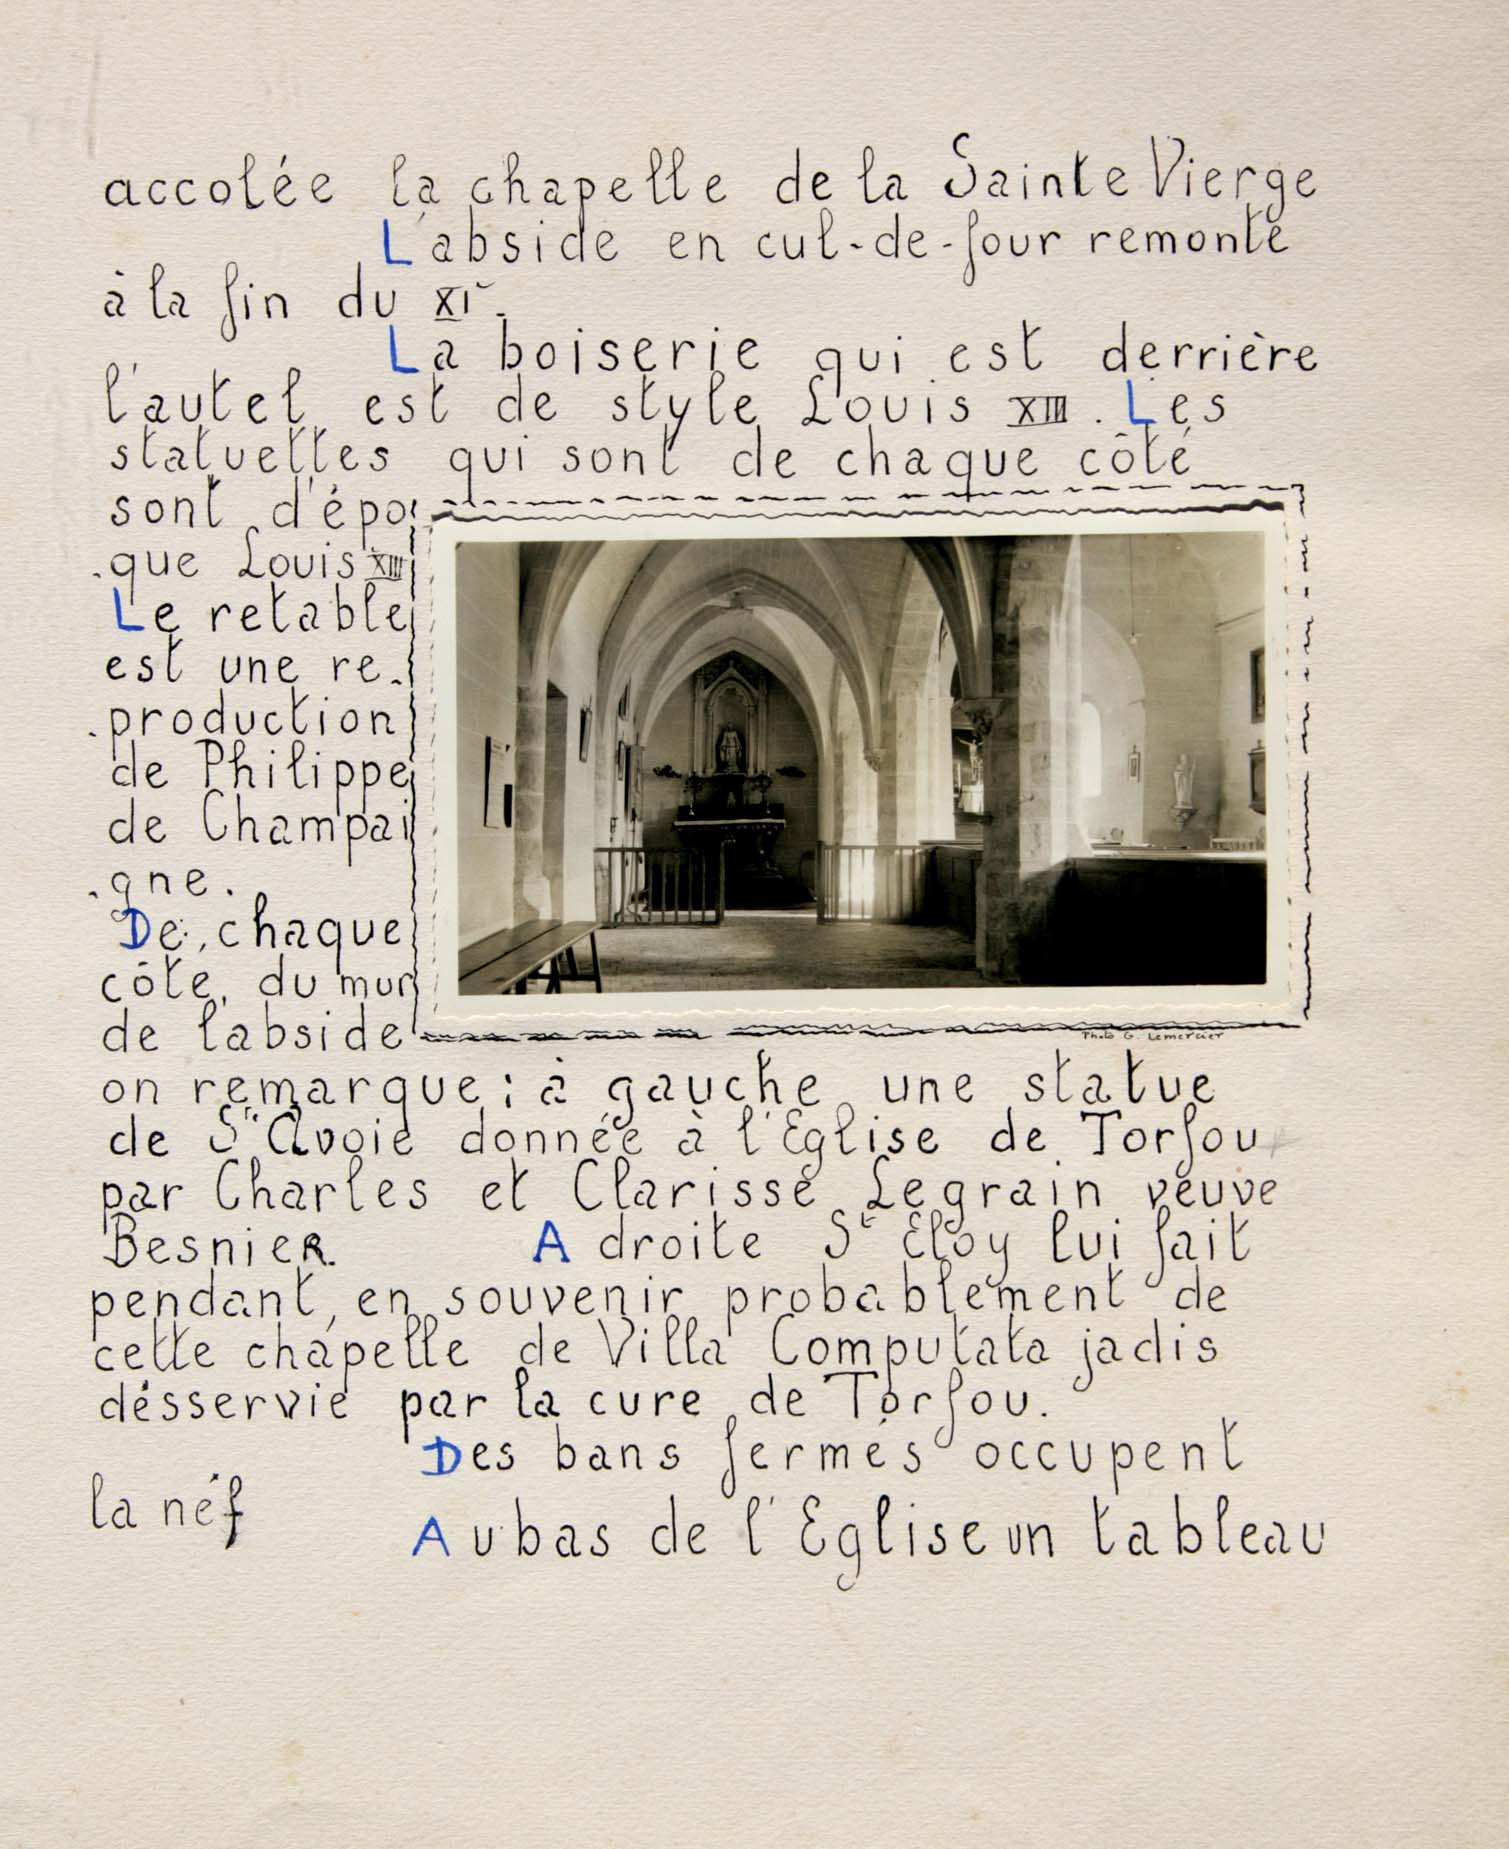 accolée la chapelle de la Sainte Vierge
L'abside en cul-de-four remonte
à la fin du XIe.
La boiserie qui est derrière
l'autel est de style Louis XIII. Les
statuettes qui sont de chaque côté
sont d'épo
-que Louis XIII
Le retable
est une re-
-production
de Philippe
de Champai
-gne.
De chaque
côté, du mur
de l'abside
Photo G. Lemercier
on remarque : à gauche une statue
de Ste Avoie donnée à l'Eglise de Torfou
par Charles et Clarisse Legrain veuve
Besnier. A droite St Eloy lui fait
pendant, en souvenir probablement de
cette chapelle de Villa Computata jadis
désservie par la cure de Torfou.
Des bans fermés occupent
la néf
Au bas de l'Eglise un tableau